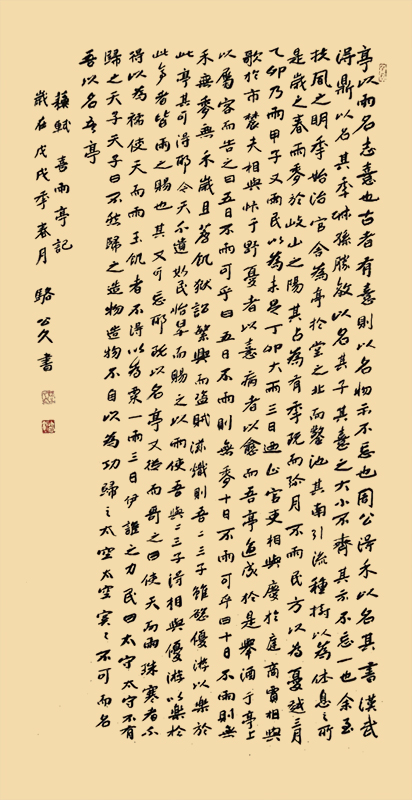 亭以雨名志憙也古者有憙則以名物示不忘也周公得禾以名其書漢武
得鼎以名其季叔孫勝敵以名其子其憙之大小不齊其示不忘一也余至
扶風之明季始治官舍為亭於堂之北而鑿池其南引流種樹以為休息之所
是歲之春雨麥於岐山之陽其占為有季既而彌月不雨民方以為憂越三月
乙卯乃雨甲子又雨民以為未足丁卯大雨三日迺止官吏相與慶於庭商賈相與
歌於市農夫相與忭于野憂者以憙病者以愈而吾亭適成於是舉酒于亭上
以屬客而告之曰五日不雨可乎曰五日不雨則無麥十日不雨可乎曰十日不雨則無
禾無麥無禾歲且荐飢獄訟繁興而盜賊滋熾則吾二三子雖慾優游以樂於
此亭其可得耶今天不遺斯民始旱而賜之以雨使吾與二三子得相與優游以樂於
此亭者皆雨之賜也其又可忘耶既以名亭又從而哥之曰使天而雨珠寒者不
得以為襦使天而雨玉飢者不得以為粟一雨三日伊誰之力民曰太守太守不有
歸之天子天子曰不然歸之造物造物不自以為功歸之太空太空冥冥不可而名
吾以名吾亭
蘇軾 喜雨亭記
歲在戊戌季春月 駱公久書